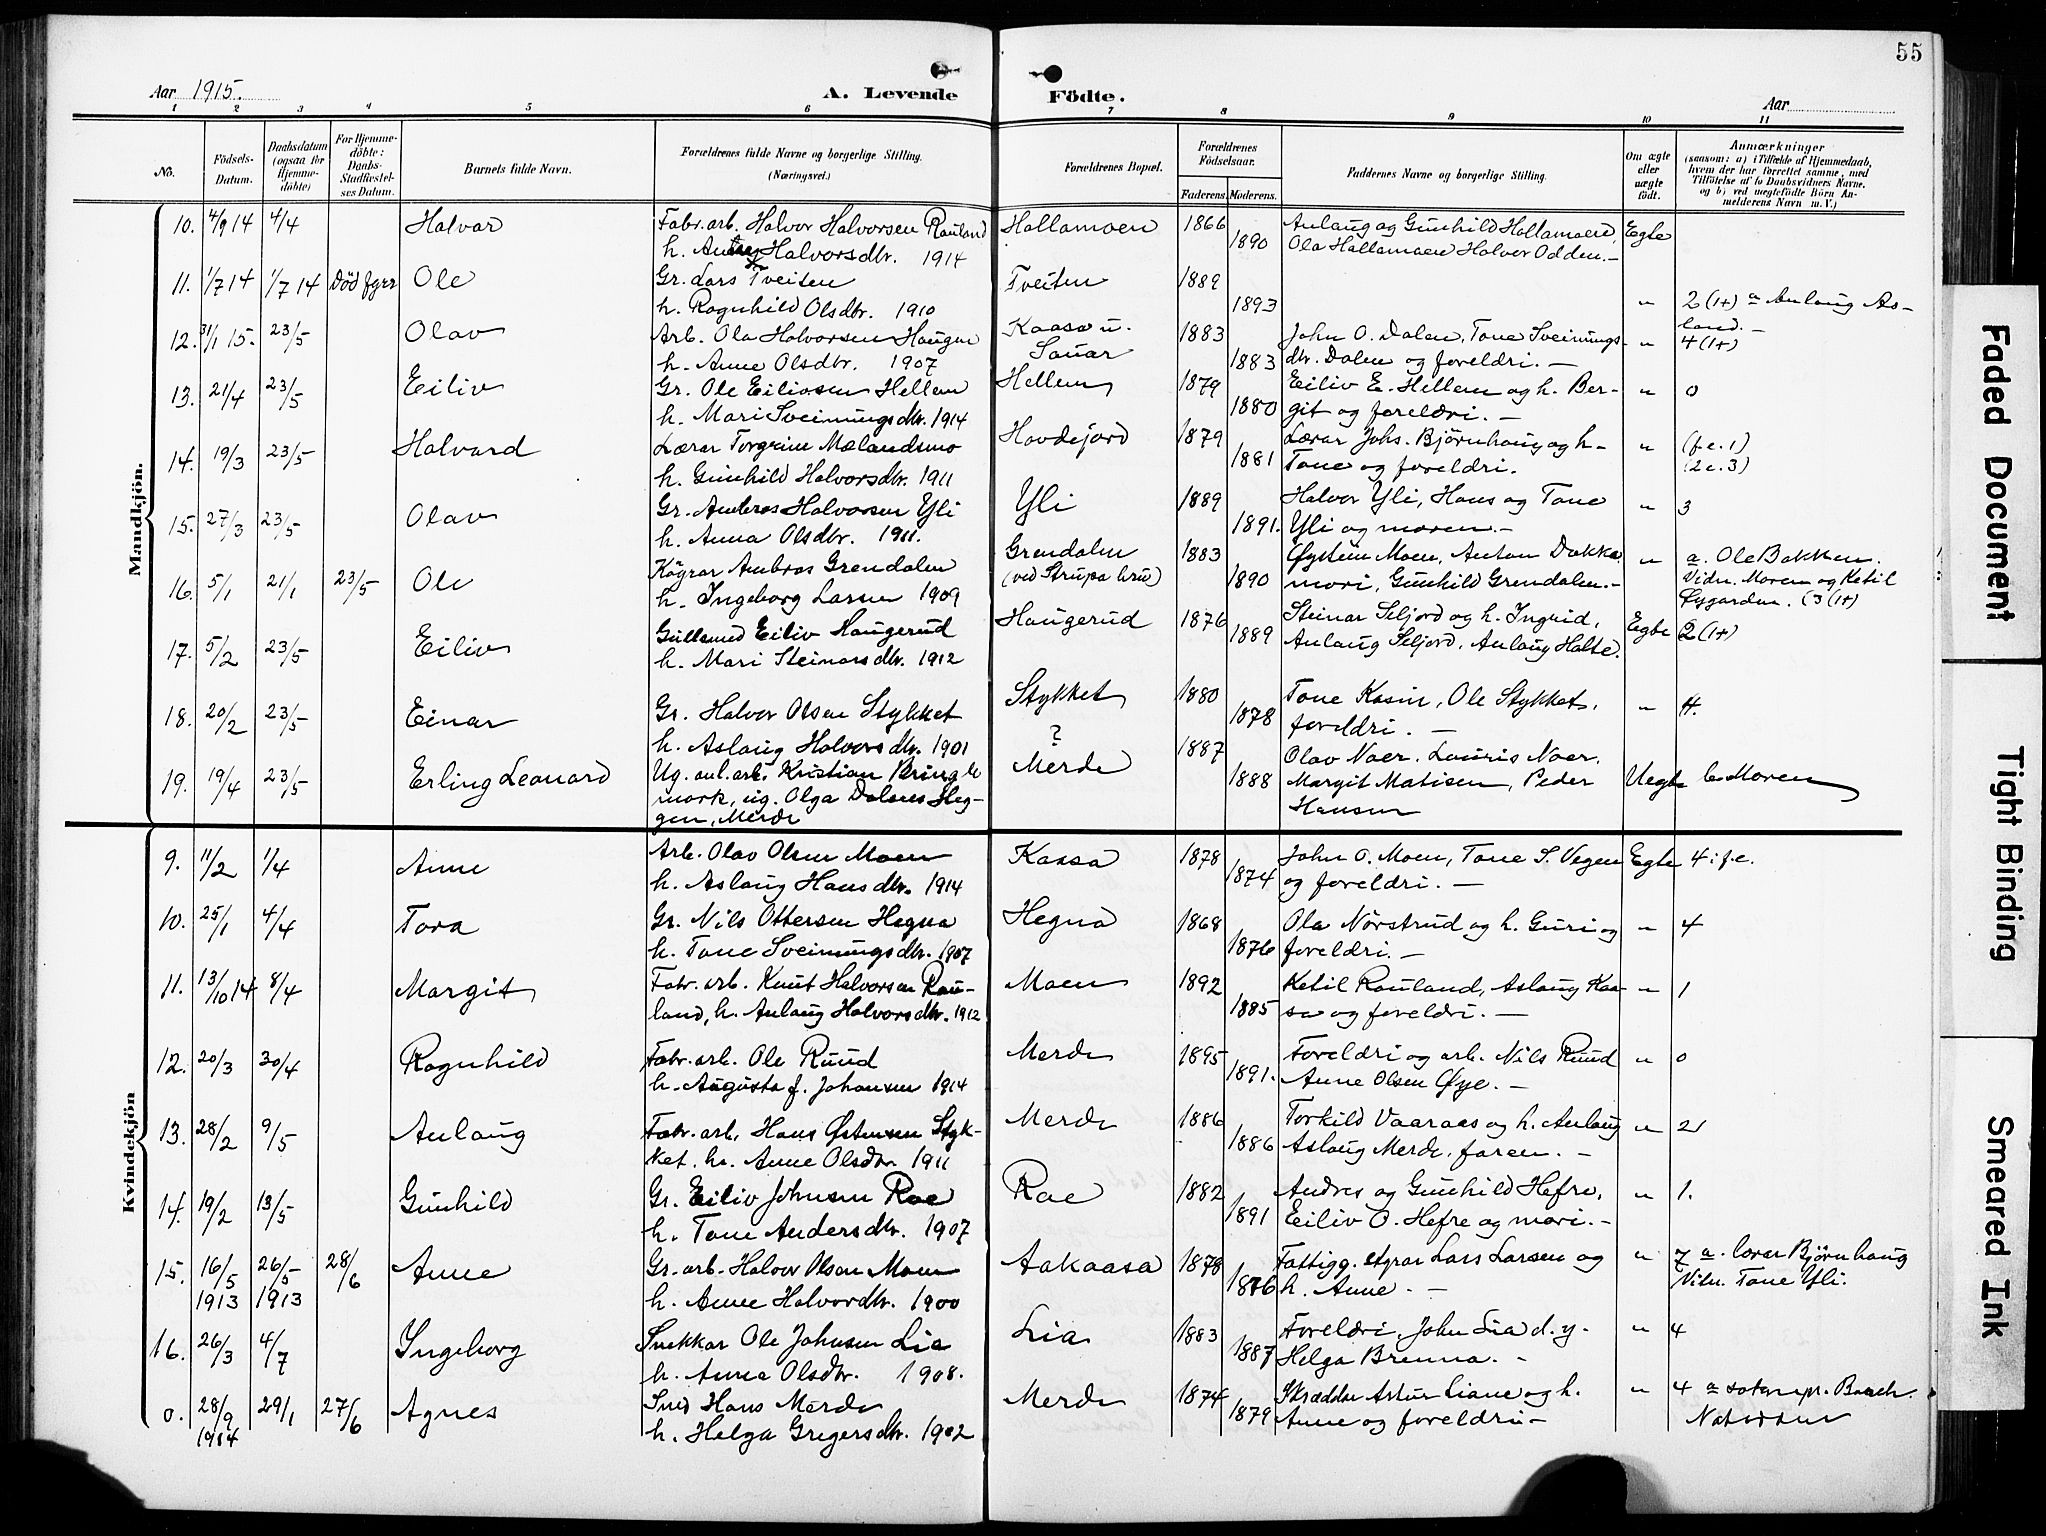 55
Aar 1915.
A. Levende Födte.
Aar
1 2 3 4 5 6 7 8 9 10 11
No.
Födsels-Datum.
Daabsdatum (ogsaa for Hjemme-döbte)
For Hjemme-döbte: Daabs-Stadfæstel-ses Datum.
Barnets fulde Navn.
Forældrenes fulde Navne og borgerlige Stilling. (Næringsvei.)
Forældrenes Bopæl.
Forældrenes Födselsaar.
Faderens. Moderens.
Faddernes Navne og borgerlige Stilling.
Om ægte eller uægte födt.
Anmærkninger
(saasom: a) i Tilfælde af Hjemmedaab, hvem der har forrettet samme, med Tilföielse af to Daabsvidners Navne, og b) ved uægtefödte Börn An-melderens Navn m. V.)
Mandkjön.
10. 4/9 14 4/4 Halvar Fabr. arb. Halvor Halvorsen Rauland Hollamoen 1866 Aulaug og Gunhild Hollamoen, Egte
h. Halvorsdtr. 1914 1890 Ola Hollamoen Halvor Odden. –
11. 1/7 14 1/7 14 Død fyrr Ole Gr. Lars Tveiten Tveiten 1889
h. Ragnhild Olsdtr. 1910 1893 " 2 (1+) a Aulaug As-
land. –
12. 31/1 15. 23/5 Olav Arb. Ola Halvorsen Haugen Kaasa u. 1883 John O. Dalen, Tone Sveinungs- " 4 (1+)
h. Anne Olsdtr. 1907 Sauar 1883 dtr. Dalen og foreldri. –
13. 21/4 23/5 Eiliv Gr. Ole Eilivsen Hellem Hellem 1879 Eiliv E. Hellem og h. Ber- " 0
h. Mari Sveinungsdtr. 1914 1880 git og foreldri. –
14. 19/3 23/5 Halvard Lærar Torgrim Mælandsmo Hovdejord 1879 Lærar Johs. Bjørnhaug og h. " (f.e. 1)
h. Gunhild Halvorsdtr. 1911 1881 Tone og foreldri. (2 e. 3)
15. 27/3 23/5 Olav Gr. Ambros Halvorsen Yli Yli 1889 Halvor Yli, Hans og Tone " 3
h. Anna Olsdtr. 1911. 1891. Yli og moren. –
16. 5/1 21/1 23/5 Ole Køyrar Ambros Grendalen Grendalen 1883 Øystein Moen, Anton Dokka " a. Ole Bakken.
h. Ingeborg Larsen 1909 (ved Strupa bru) 1890 mori, Gunhild Grendalen. – Vidn. Moren og Ketil
Øygarden. (3 (1+)
17. 5/2 23/5 Eiliv Gullsmed Eiliv Haugerud Haugerud 1876 Steinar Seljord og h. Ingrid, Egte 2 (1+)
h. Mari Steinarsdtr. 1912 1889 Aulaug Seljord, Aulaug Holte.
18. 20/2 23/5 Einar Gr. Halvor Olsen Stykket Stykket 1880 Tone Kasin, Ole Stykket, " 4.
h. Aslaug Halvorsdtr. 1901 1878 foreldri. –
19. 19/4 23/5 Erling Leonard Ug. anl. arb. Kristian Bringle ? Merde 1887 Olav Naer. Lauris Naer.
mork, ug. Olga Dolnes Heg- 1888 Margit Matisen, Peder Uegte b Moren
gen, Merde Hansen
Kvindekjön
9. 11/2 1/4 Anne Arb. Olav Olsen Moen Kaasa 1878 John O. Moen, Tone S. Vegen Egte 4 i f. e.
h. Aslaug Hansdtr. 1914 1874 og foreldri. –
10. 25/1 4/4 Tora Gr. Nils Ottersen Hegna Hegna 1868 Ola Nørstrud og h. Guri og " 4
h. Tone Sveinungsdtr. 1907 1876 foreldri. –
11. 13/10 14 8/4 Margit Fabr. arb. Knut Halvorsen Rau- Moen 1892 Ketil Rauland, Aslaug Kaa- " 1
land, h. Aulaug Halvorsdtr. 1912 1885 sa og foreldri. –
12. 20/3 30/4 Ragnhild Fabr. arb. Ole Ruud Merde 1895 Foreldri og arb. Nils Ruud " 0
h. Augusta f. Johansen 1914 1891. Anne Olsen Øye. –
13. 28/2 9/5 Aulaug Fabr. arb. Hans Østensen Styk- Merde 1886 Torkild Vaaraas og h. Aulaug " 2
ket. h. Anne Olsdtr. 1911 1886 Aslaug Merde, faren. –
14. 19/2 13/5 Gunhild Gr. Eiliv Johnsen Roe Roe 1882 Andres og Gunhild Hefre, " 1.
h. Tone Andersdtr. 1907 1891 Eiliv O. Hefre og mori. –
15. 16/5 1913 26/5 1913 28/6 Anne Gr. arb. Halvor Olsen Moen Aakaasa 1878 Fattigg. styrar Lars Larsen og " 7 a. lærar Bjørnhaug
h. Anne Halvordtr. 1900 1876 h. Anne. – Vitn. Tone Yli.
16. 26/3 4/7 Ingeborg Snekkar Ole Johnsen Lia Lia 1883 Foreldri, John Lia d. y. " 4
h. Anne Olsdtr. 1908. 1887 Helga Brenna. –
0. 28/9 1914 29/1 27/6 Agnes Smed Hans Merde Merde 1874 Skrædder Artur Liane og h. " 4 a sokнepr. Baach.
h. Helga Gregersdtr. 1902 1879 Anne og foreldri – Notodden
Faded Document
Tight Binding
Smeared Ink